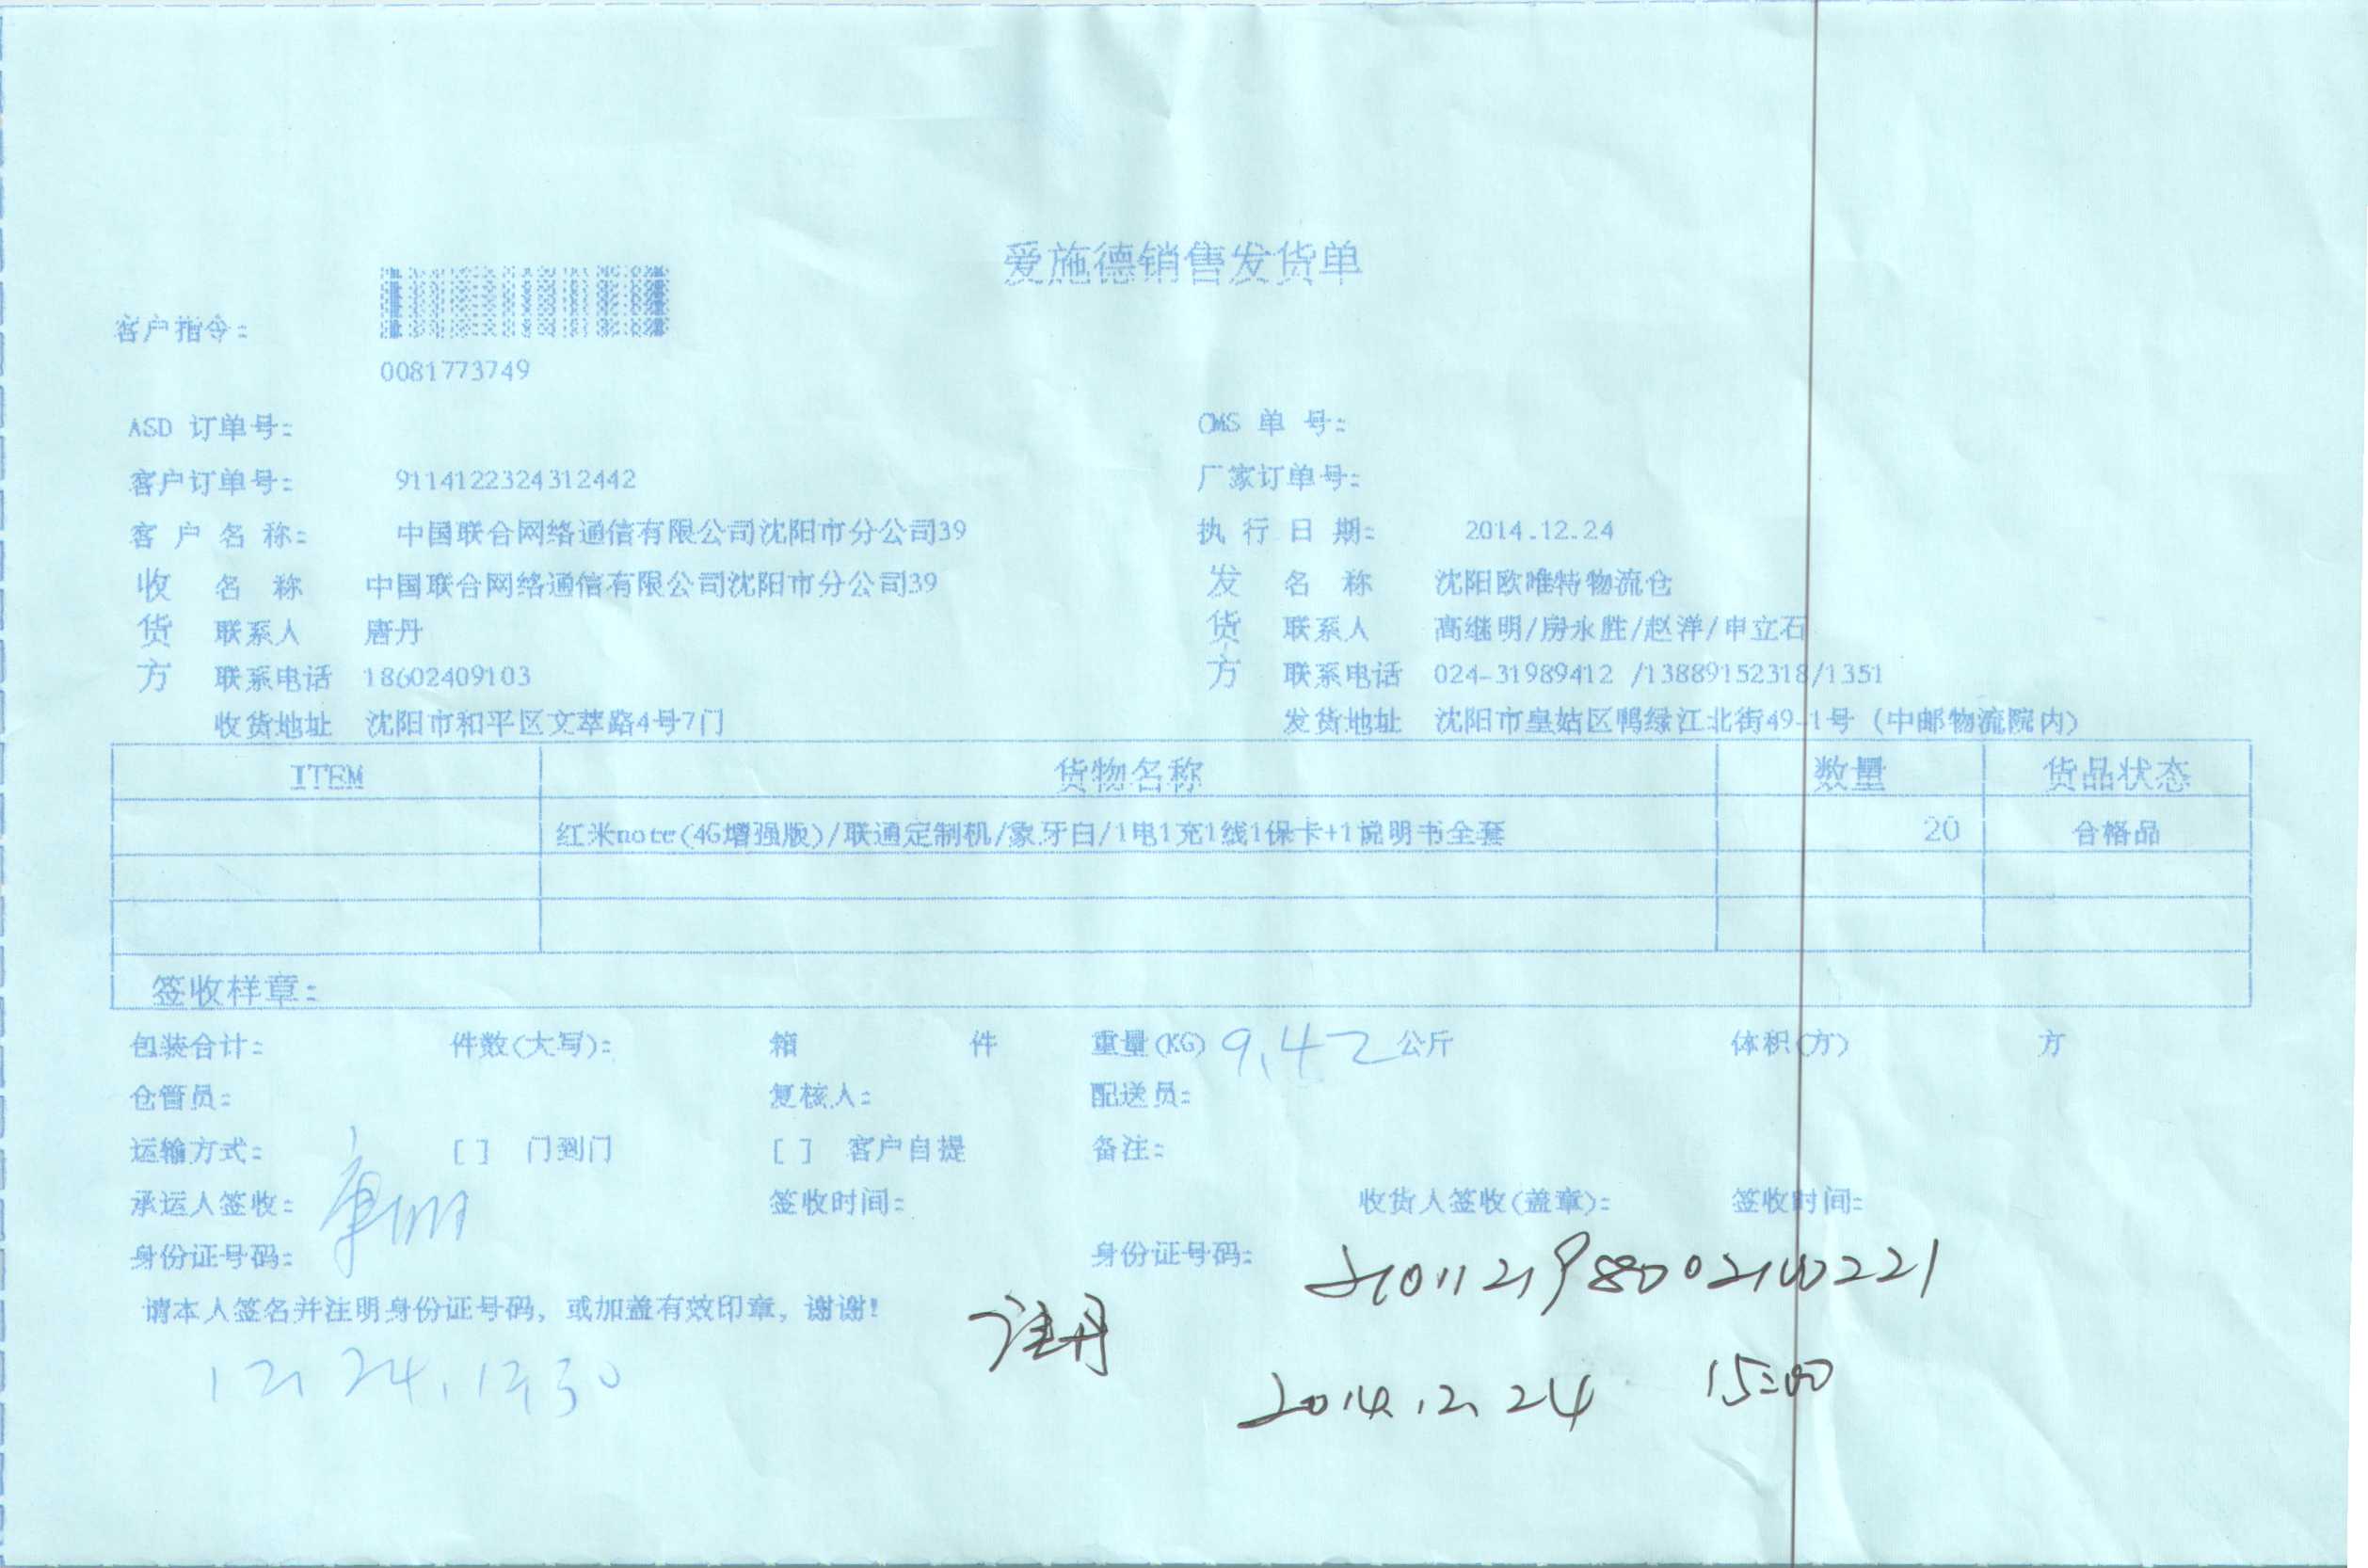 爱施德销售发货单
客户指令:
0081773749
ASD 订单号: OMS 单 号:
客户订单号: 9114122324312442 厂家订单号:
客 户 名 称: 中国联合网络通信有限公司沈阳市分公司39 执 行 日 期: 2014.12.24
收 名 称 中国联合网络通信有限公司沈阳市分公司39 发 名 称 沈阳欧唯特物流仓
货 联系人 唐丹 货 联系人 高继明/房永胜/赵洋/申立石
方 联系电话 18602409103 方 联系电话 024-31989412 /13889152318/1351
收货地址 沈阳市和平区文萃路4号7门 发货地址 沈阳市皇姑区鸭绿江北街49-1号 (中邮物流院内)
ITEM 货物名称 数量 货品状态
红米note(4G增强版)/联通定制机/象牙白/1电1充1线1保卡+1说明书全套 20 合格品
签收样章:
包装合计: 件数(大写): 箱 件 重量(KG) 9.42 公斤 体积(方) 方
仓管员: 复核人: 配送员:
运输方式: [ ] 门到门 [ ] 客户自提 备注:
承运人签收: 签收时间: 收货人签收(盖章): 签收时间:
身份证号码: 身份证号码:
请本人签名并注明身份证号码, 或加盖有效印章, 谢谢!
2014.12.24 15:00